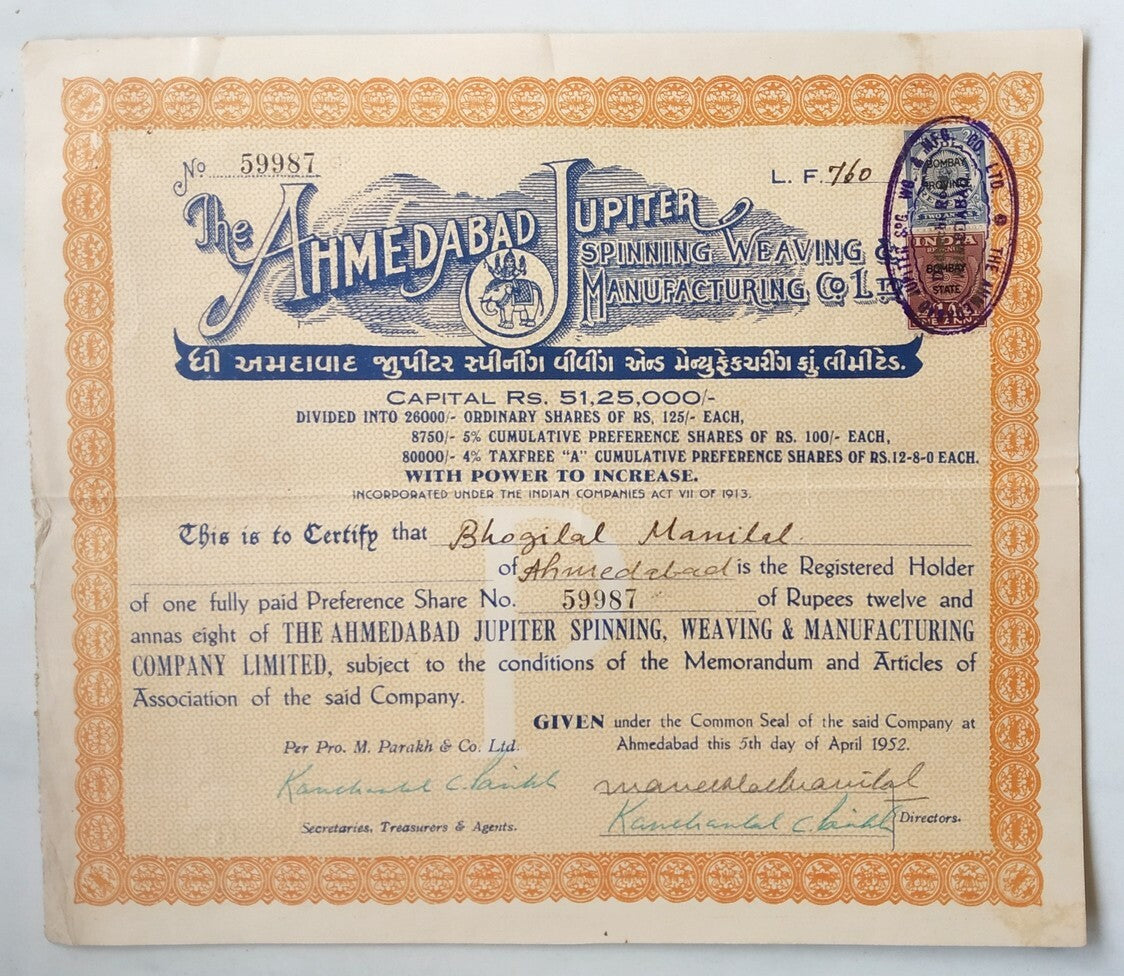 No 59987
L. F. 760
The AHMEDABAD JUPITER
SPINNING WEAVING &
MANUFACTURING CO LTD
ધી અમદાવાદ જુપીટર સ્પીનીંગ વીવીંગ એન્ડ મેન્યુફેકચરીંગ કું. લીમીટેડ.
CAPITAL RS. 51,25,000/-
DIVIDED INTO 26000/- ORDINARY SHARES OF RS, 125/- EACH,
8750/- 5% CUMULATIVE PREFERENCE SHARES OF RS. 100/- EACH,
80000/- 4% TAXFREE "A" CUMULATIVE PREFERENCE SHARES OF RS.12-8-0 EACH.
WITH POWER TO INCREASE.
INCORPORATED UNDER THE INDIAN COMPANIES ACT VII OF 1913.
This is to Certify that Bhogilal Manilal.
of Ahmedabad is the Registered Holder
of one fully paid Preference Share No. 59987 of Rupees twelve and
annas eight of THE AHMEDABAD JUPITER SPINNING, WEAVING & MANUFACTURING
COMPANY LIMITED, subject to the conditions of the Memorandum and Articles of
Association of the said Company.
P
GIVEN under the Common Seal of the said Company at
Ahmedabad this 5th day of April 1952.
Per Pro. M. Parakh & Co. Ltd.
Kanchanlal C. Parikh
Kanchanlal C. Parikh
Secretaries, Treasurers & Agents.
Directors.
BOMBAY
PROVINCE
TWO ANNAS
INDIA
BOMBAY
STATE
ONE ANNA